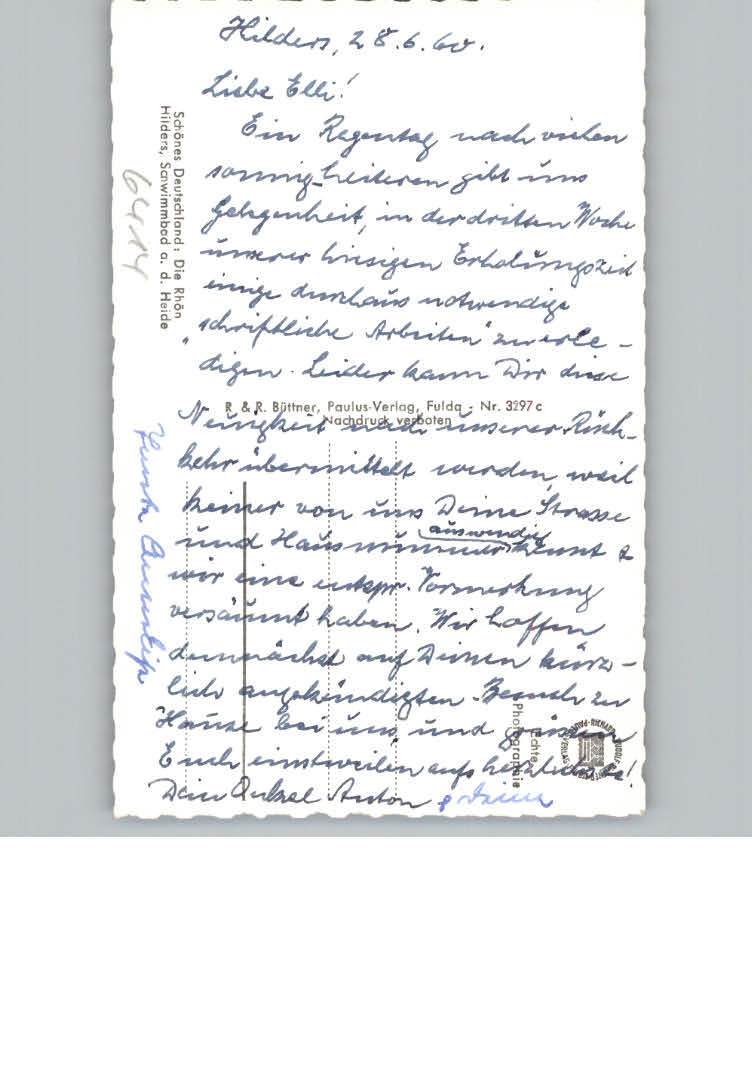 Hilders, 28.6.60.
Liebe Elli!
Ein Regentag nach vielen
sonnig-heiteren gibt uns
Gelegenheit, in der dritten Woche
unserer hiesigen Erholungszeit
einige durchaus notwendige
"schriftliche Arbeiten" zu erle-
digen. Leider kann Dir diese
Neuigkeit nach unserer Rück-
kehr übermittelt werden, weil
keiner von uns Deine Strasse
und Hausnummer auswendig kennt &
wir eine entspr. Vormerkung
versäumt haben. Wir hoffen
demnächst auf Deinen kürz-
lich angekündigten Besuch zu
Hause bei uns, und grüssen
Euch einstweilen aufs herzlichste!
Dein Onkel Anton & Deine
Tante
Schönes Deutschland: Die Rhön
Hilders, Schwimmbad a. d. Heide
6414
R. & R. Büttner, Paulus-Verlag, Fulda - Nr. 3297c
Nachdruck verboten
Echte
Photographie